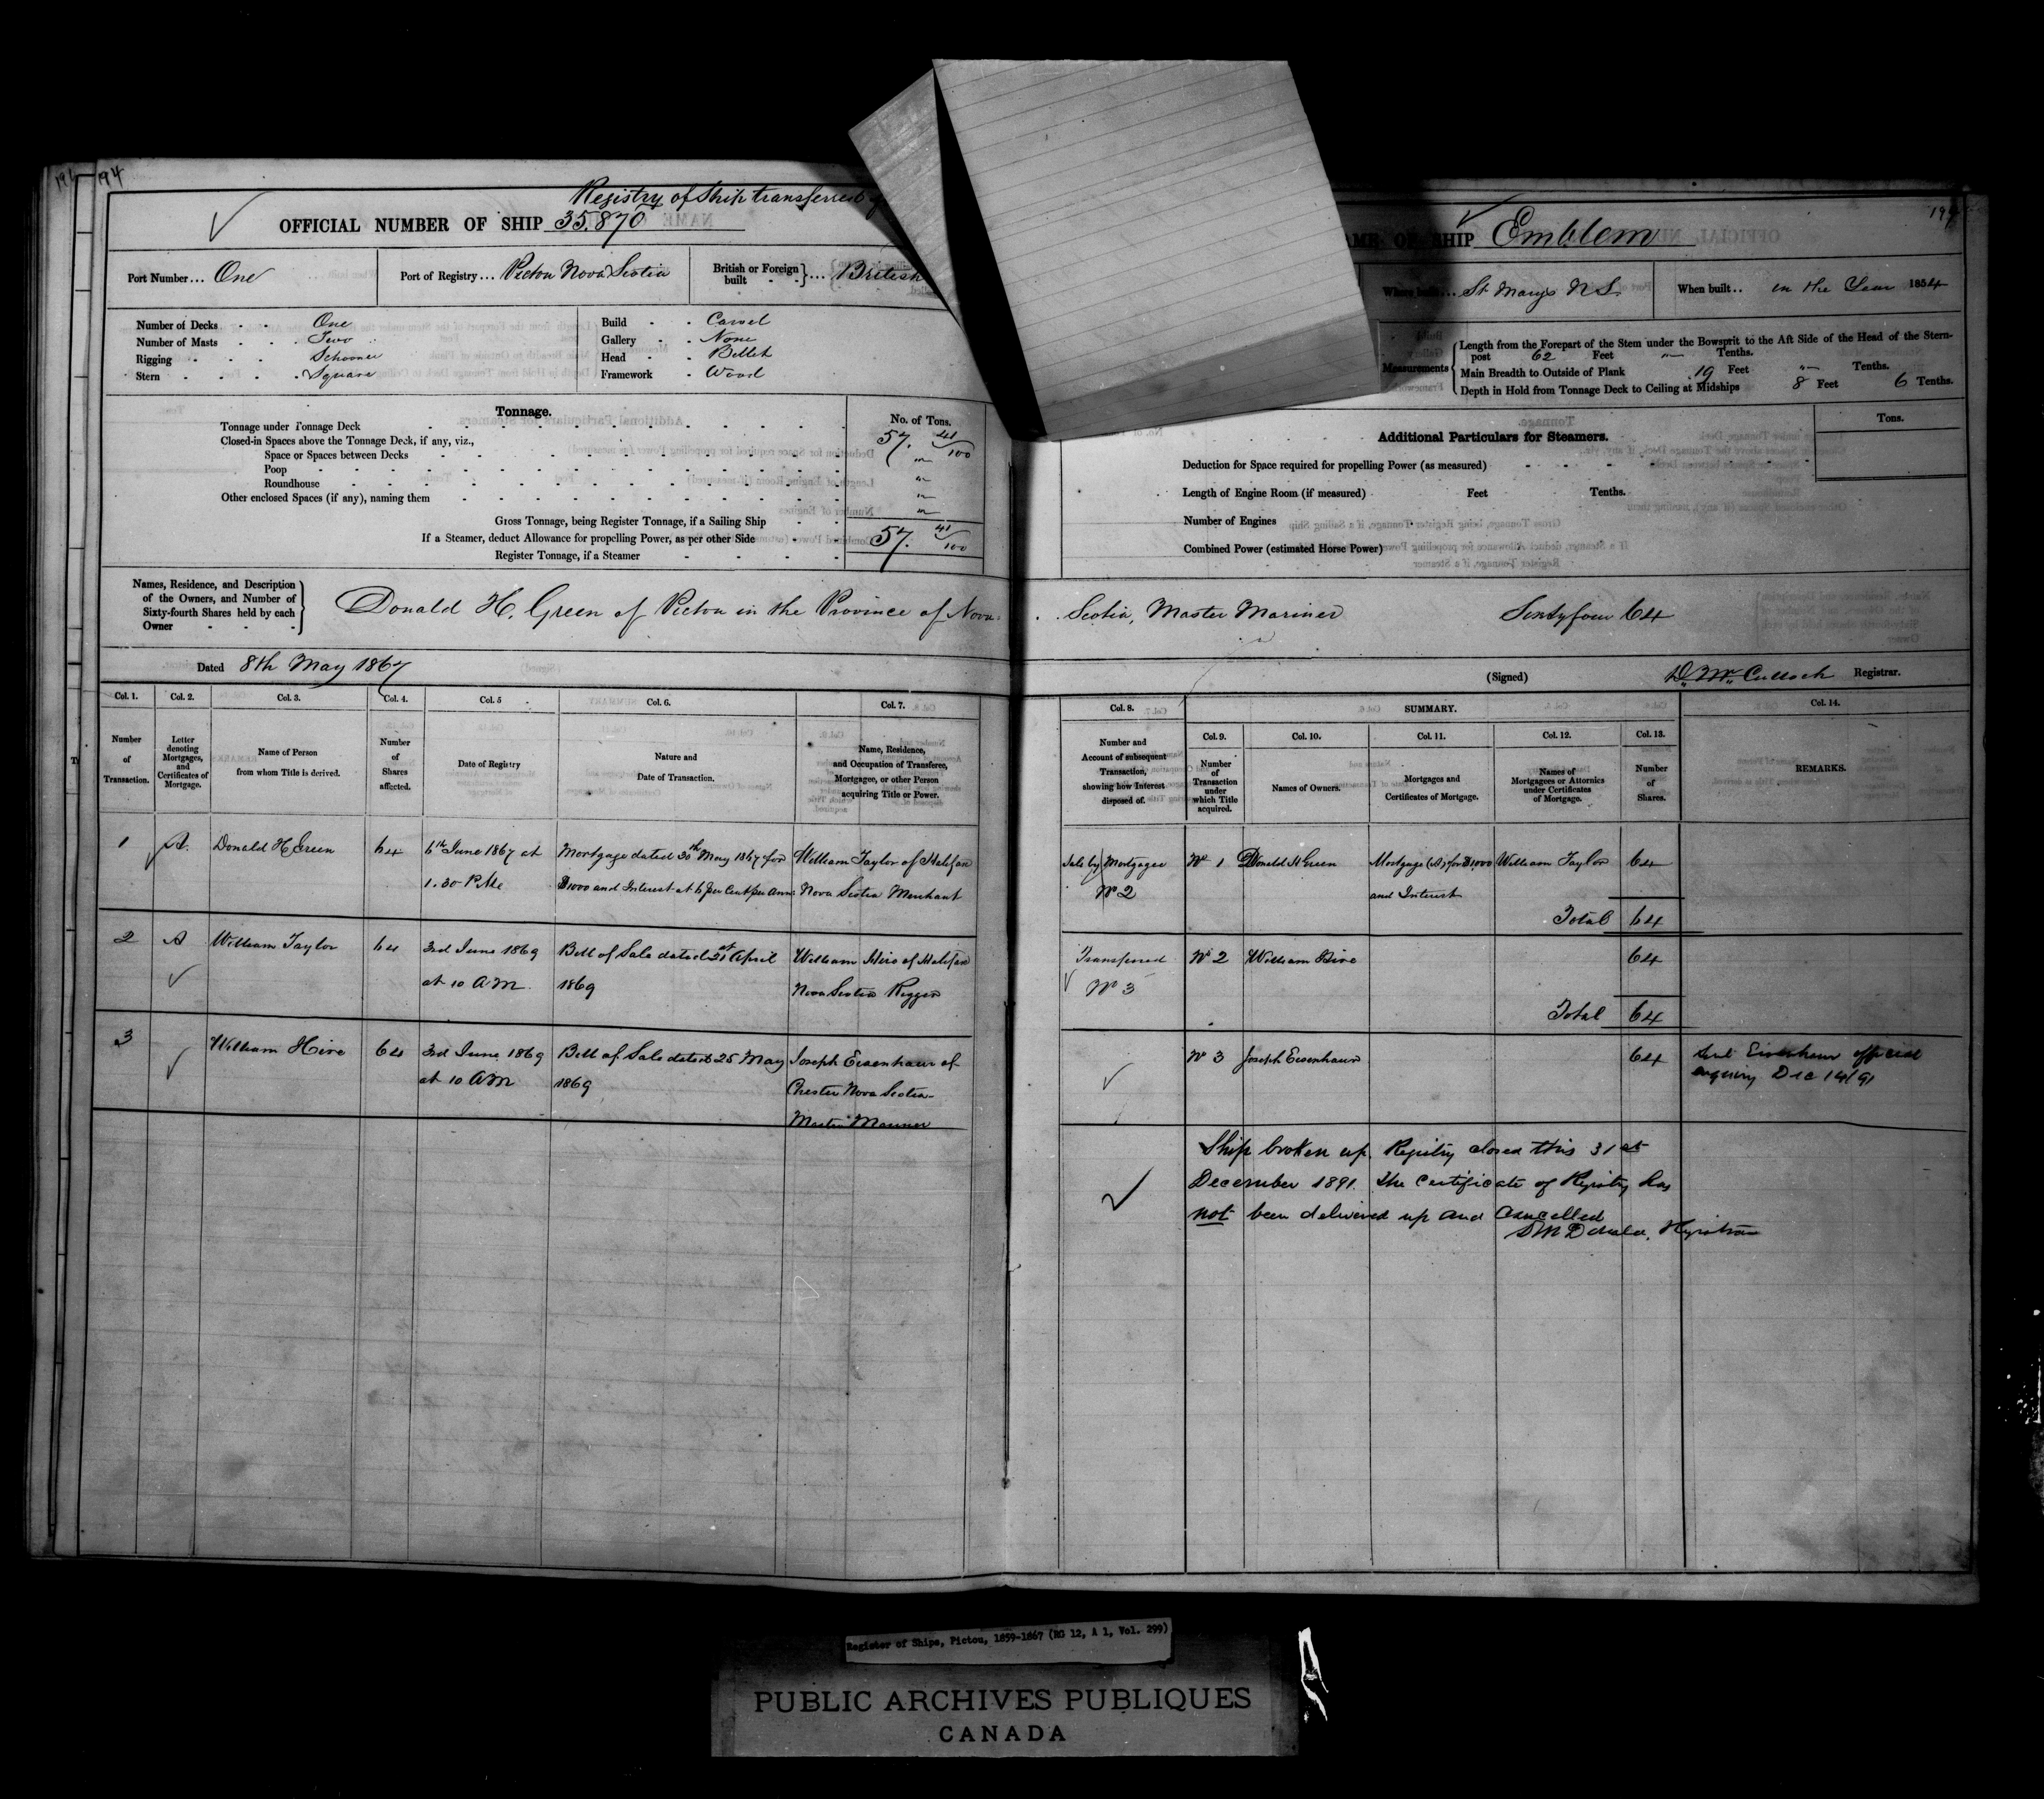 194
Registry of Ship transferred
OFFICIAL NUMBER OF SHIP 35.870
Port Number... One
Port of Registry... Pictou Nova Scotia
British or Foreign built } ... British
Number of Decks One
Number of Masts Two
Rigging Schooner
Stern Square
Build Carvel
Gallery None
Head Billet
Framework Wood
Tonnage.
No. of Tons.
Tonnage under Tonnage Deck 57. 41/100
Closed-in Spaces above the Tonnage Deck, if any, viz.,
Space or Spaces between Decks "
Poop "
Roundhouse "
Other enclosed Spaces (if any), naming them "
Gross Tonnage, being Register Tonnage, if a Sailing Ship
If a Steamer, deduct Allowance for propelling Power, as per other Side 57. 41/100
Register Tonnage, if a Steamer
Names, Residence, and Description
of the Owners, and Number of
Sixty-fourth Shares held by each
Owner
Donald H. Green of Pictou in the Province of Nova
Dated 8th May 1867
Col. 1. Col. 2. Col. 3. Col. 4. Col. 5 Col. 6. Col. 7.
Number of Transaction.
Letter denoting Mortgages, and Certificates of Mortgage.
Name of Person from whom Title is derived.
Number of Shares affected.
Date of Registry
Nature and Date of Transaction.
Name, Residence, and Occupation of Transferee, Mortgagee, or other Person acquiring Title or Power.
1 A. Donald H Green 64 6th June 1867 at Mortgage dated 30th May 1867 for William Taylor of Halifax
1.30 P.M. $1000 and Interest at 6 per Cent per Ann: Nova Scotia Merchant
2 A William Taylor 64 3rd June 1869 Bill of Sale dated 21st April William Hire of Halifax
at 10 A M. 1869 Nova Scotia Rigger
3 William Hire 64 3rd June 1869 Bill of Sale dated 25 May Joseph Eisenhaur of
at 10 A M 1869 Chester Nova Scotia
Master Mariner
194
NAME OF SHIP Emblem
Where built... St Marys N S.
When built.. in the Year 1854
Measurements
Length from the Forepart of the Stem under the Bowsprit to the Aft Side of the Head of the Stern-
post 62 Feet " Tenths.
Main Breadth to Outside of Plank 19 Feet " Tenths.
Depth in Hold from Tonnage Deck to Ceiling at Midships 8 Feet 6 Tenths.
Additional Particulars for Steamers.
Tons.
Deduction for Space required for propelling Power (as measured)
Length of Engine Room (if measured) Feet Tenths.
Number of Engines
Combined Power (estimated Horse Power)
Scotia, Master Mariner Sixtyfour 64
(Signed) D. McCulloch Registrar.
Col. 8. SUMMARY. Col. 14.
Col. 9. Col. 10. Col. 11. Col. 12. Col. 13.
Number and Account of subsequent Transaction, showing how Interest disposed of.
Number of Transaction under which Title acquired.
Names of Owners.
Mortgages and Certificates of Mortgage.
Names of Mortgagees or Attornies under Certificates of Mortgage.
Number of Shares.
REMARKS.
Sale by Mortgagee No 1 Donald H Green Mortgage (A) for $1000 William Taylor 64
No 2 and Interest
Total 64
Transferred No 2 William Hire 64
No 3
Total 64
No 3 Joseph Eisenhaur 64 Eisenhaur official
enquiry Dec 14/91
Ship broken up. Registry closed this 31st
December 1891. The Certificate of Registry has
not been delivered up and cancelled
Registrar
Register of Ships, Pictou, 1859-1867 (RG 12, A 1, Vol. 299)
PUBLIC ARCHIVES PUBLIQUES
CANADA